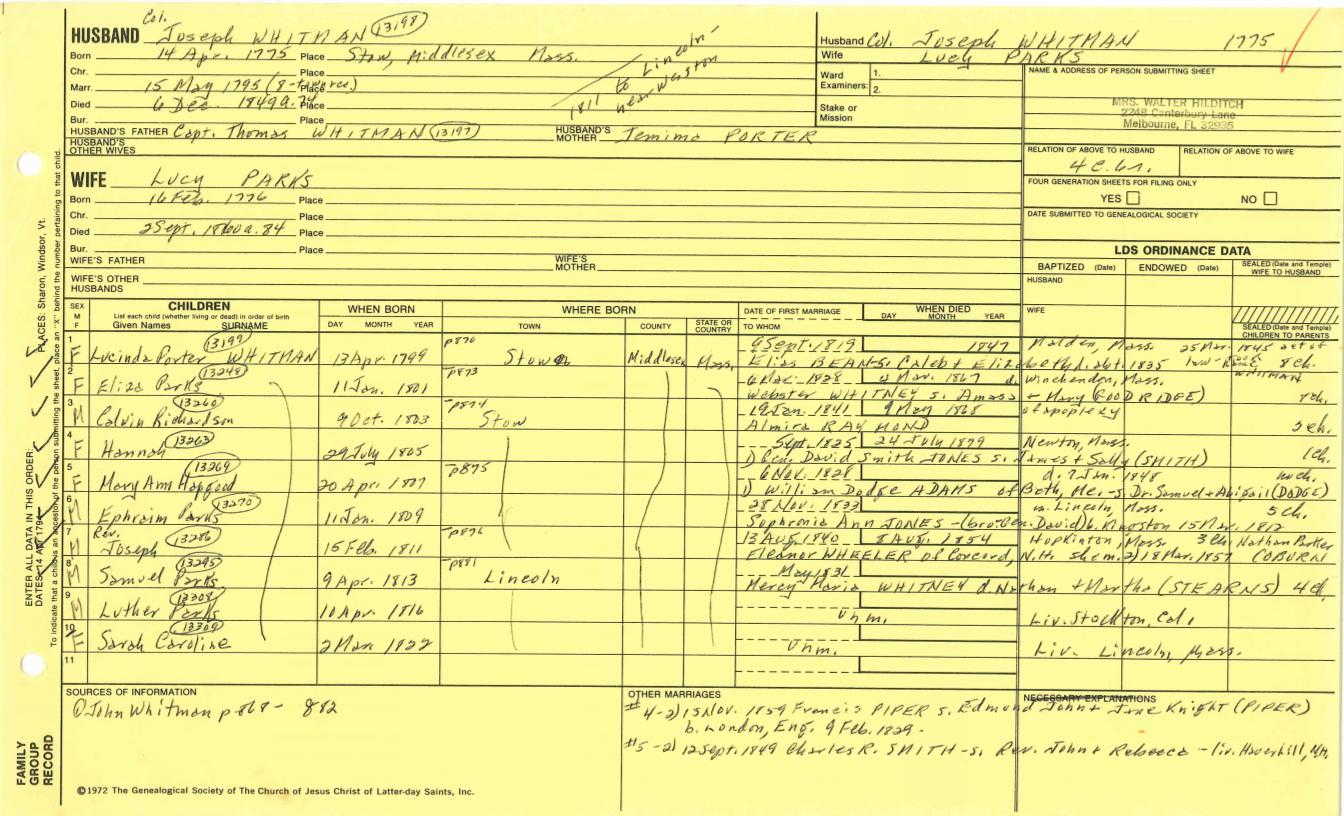 Col.
HUSBAND Joseph WHITMAN 13198
Born 14 Apr. 1775 Place Stow, Middlesex Mass.
Chr. Place
Marr. 15 May 1795 Place
Died 6 Dec. 1849 a. 74 Place
Bur. Place
1811 to Lincoln - near Weston
HUSBAND'S FATHER Capt. Thomas WHITMAN 13197 HUSBAND'S MOTHER Jemima PORTER
HUSBAND'S OTHER WIVES
Husband Col. Joseph WHITMAN 1775
Wife Lucy PARKS
Ward Examiners: 1.
2.
Stake or Mission
NAME & ADDRESS OF PERSON SUBMITTING SHEET
MRS. WALTER HILDITCH
2248 Canterbury Lane
Melbourne, FL 32935
RELATION OF ABOVE TO HUSBAND RELATION OF ABOVE TO WIFE
FOUR GENERATION SHEETS FOR FILING ONLY
YES NO
DATE SUBMITTED TO GENEALOGICAL SOCIETY
WIFE Lucy PARKS
Born 16 Feb. 1776 Place
Chr. Place
Died 2 Sept. 1860 a. 84 Place
Bur. Place
WIFE'S FATHER WIFE'S MOTHER
WIFE'S OTHER HUSBANDS
LDS ORDINANCE DATA
BAPTIZED (Date) ENDOWED (Date) SEALED (Date and Temple) WIFE TO HUSBAND
HUSBAND
WIFE
SEALED (Date and Temple) CHILDREN TO PARENTS
SEX M F CHILDREN WHEN BORN WHERE BORN DATE OF FIRST MARRIAGE WHEN DIED
List each child (whether living or dead) in order of birth
Given Names SURNAME DAY MONTH YEAR TOWN COUNTY STATE OR COUNTRY TO WHOM DAY MONTH YEAR
1 F Lucinda Porter WHITMAN 13199 13 Apr 1799 p870 Stow Middlesex Mass. 6 Sept. 1819 1847 Malden, Mass.
Elias BEAN s. Caleb +
2 F Eliza Parks 13248 11 Jan. 1801 p873 Winchendon, Mass.
Webster WHITNEY s. Amasa + Mary (GOODRIDGE)
3 M Calvin Richardson 13260 9 Oct. 1803 p874 Stow 19 Jan. 1841 9 May 1865 of apoplexy
Almira RAYMOND 3 ch.
4 F Hannah 13263 29 July 1805 Sept. 1825 24 July 1879 Newton, Mass.
David Smith JONES s. James + Sally (SMITH) 1 ch.
5 F Mary Ann Hapgood 13269 20 Apr. 1807 p875 6 Nov. 1828 d. 7 Jan. 1848
1) William Dodge ADAMS of Beth, Me. - s. Dr. Samuel + Abigail (DODGE)
6 M Ephraim Parks 13270 11 Jan. 1809 28 Nov. 1833 m. Lincoln, Mass. 5 ch.
Sophronia Ann JONES b. Kingston 15 Mar. 1812
7 M Rev. Joseph 13286 15 Feb. 1811 p876 13 Aug 1840 8 Aug. 1854 Hopkinton, Mass. 3 ch. Nathan Parker
Eleanor WHEELER of Concord, N.H. she m. 2) 18 Mar. 1857 COBURN
8 M Samuel Parks 13295 9 Apr. 1813 p881 Lincoln May 1831
Mercy Maria WHITNEY d. Nathan + Martha (STEARNS) 4 ch.
9 M Luther Parks 13308 10 Apr. 1816 Unm. Liv. Stockton, Cal.
10 F Sarah Caroline 13309 2 Mar 1822 Unm. Liv. Lincoln, Mass.
11
SOURCES OF INFORMATION
① John Whitman p 868 - 882
OTHER MARRIAGES
#4 - 2) 15 Nov. 1859 Francis PIPER s. Edmund John + Jane Knight (PIPER)
b. London, Eng. 9 Feb. 1829.
#5 - 2) 12 Sept. 1849 Charles R. SMITH - s. Rev. John + Rebecca - liv. Haverhill, N.H.
NECESSARY EXPLANATIONS
©1972 The Genealogical Society of The Church of Jesus Christ of Latter-day Saints, Inc.
FAMILY GROUP RECORD
ENTER ALL DATA IN THIS ORDER:
DATES: 14 Apr 1794 PLACES: Sharon, Windsor, Vt.
To indicate that a child is an ancestor of the person submitting the sheet, place an "X" behind the number pertaining to that child.